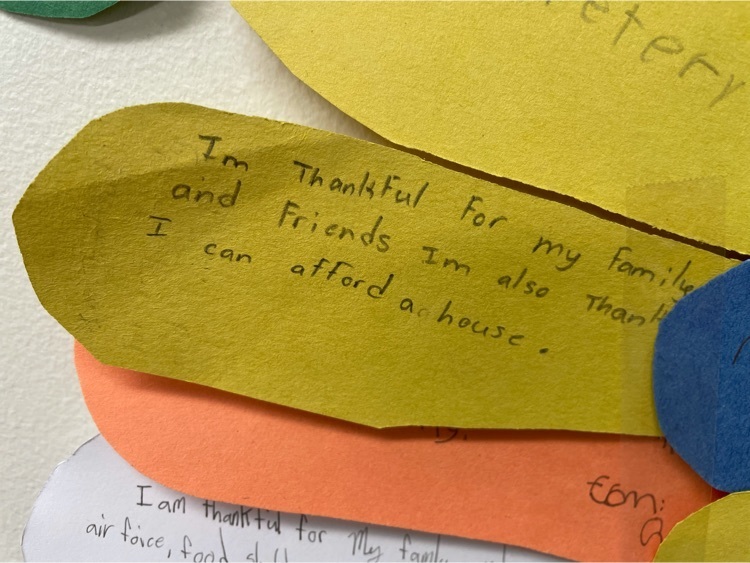 etery
Im Thankful For my family
and Friends Im also Thank
I can afford a house.
I am thankful for My family
air force, food